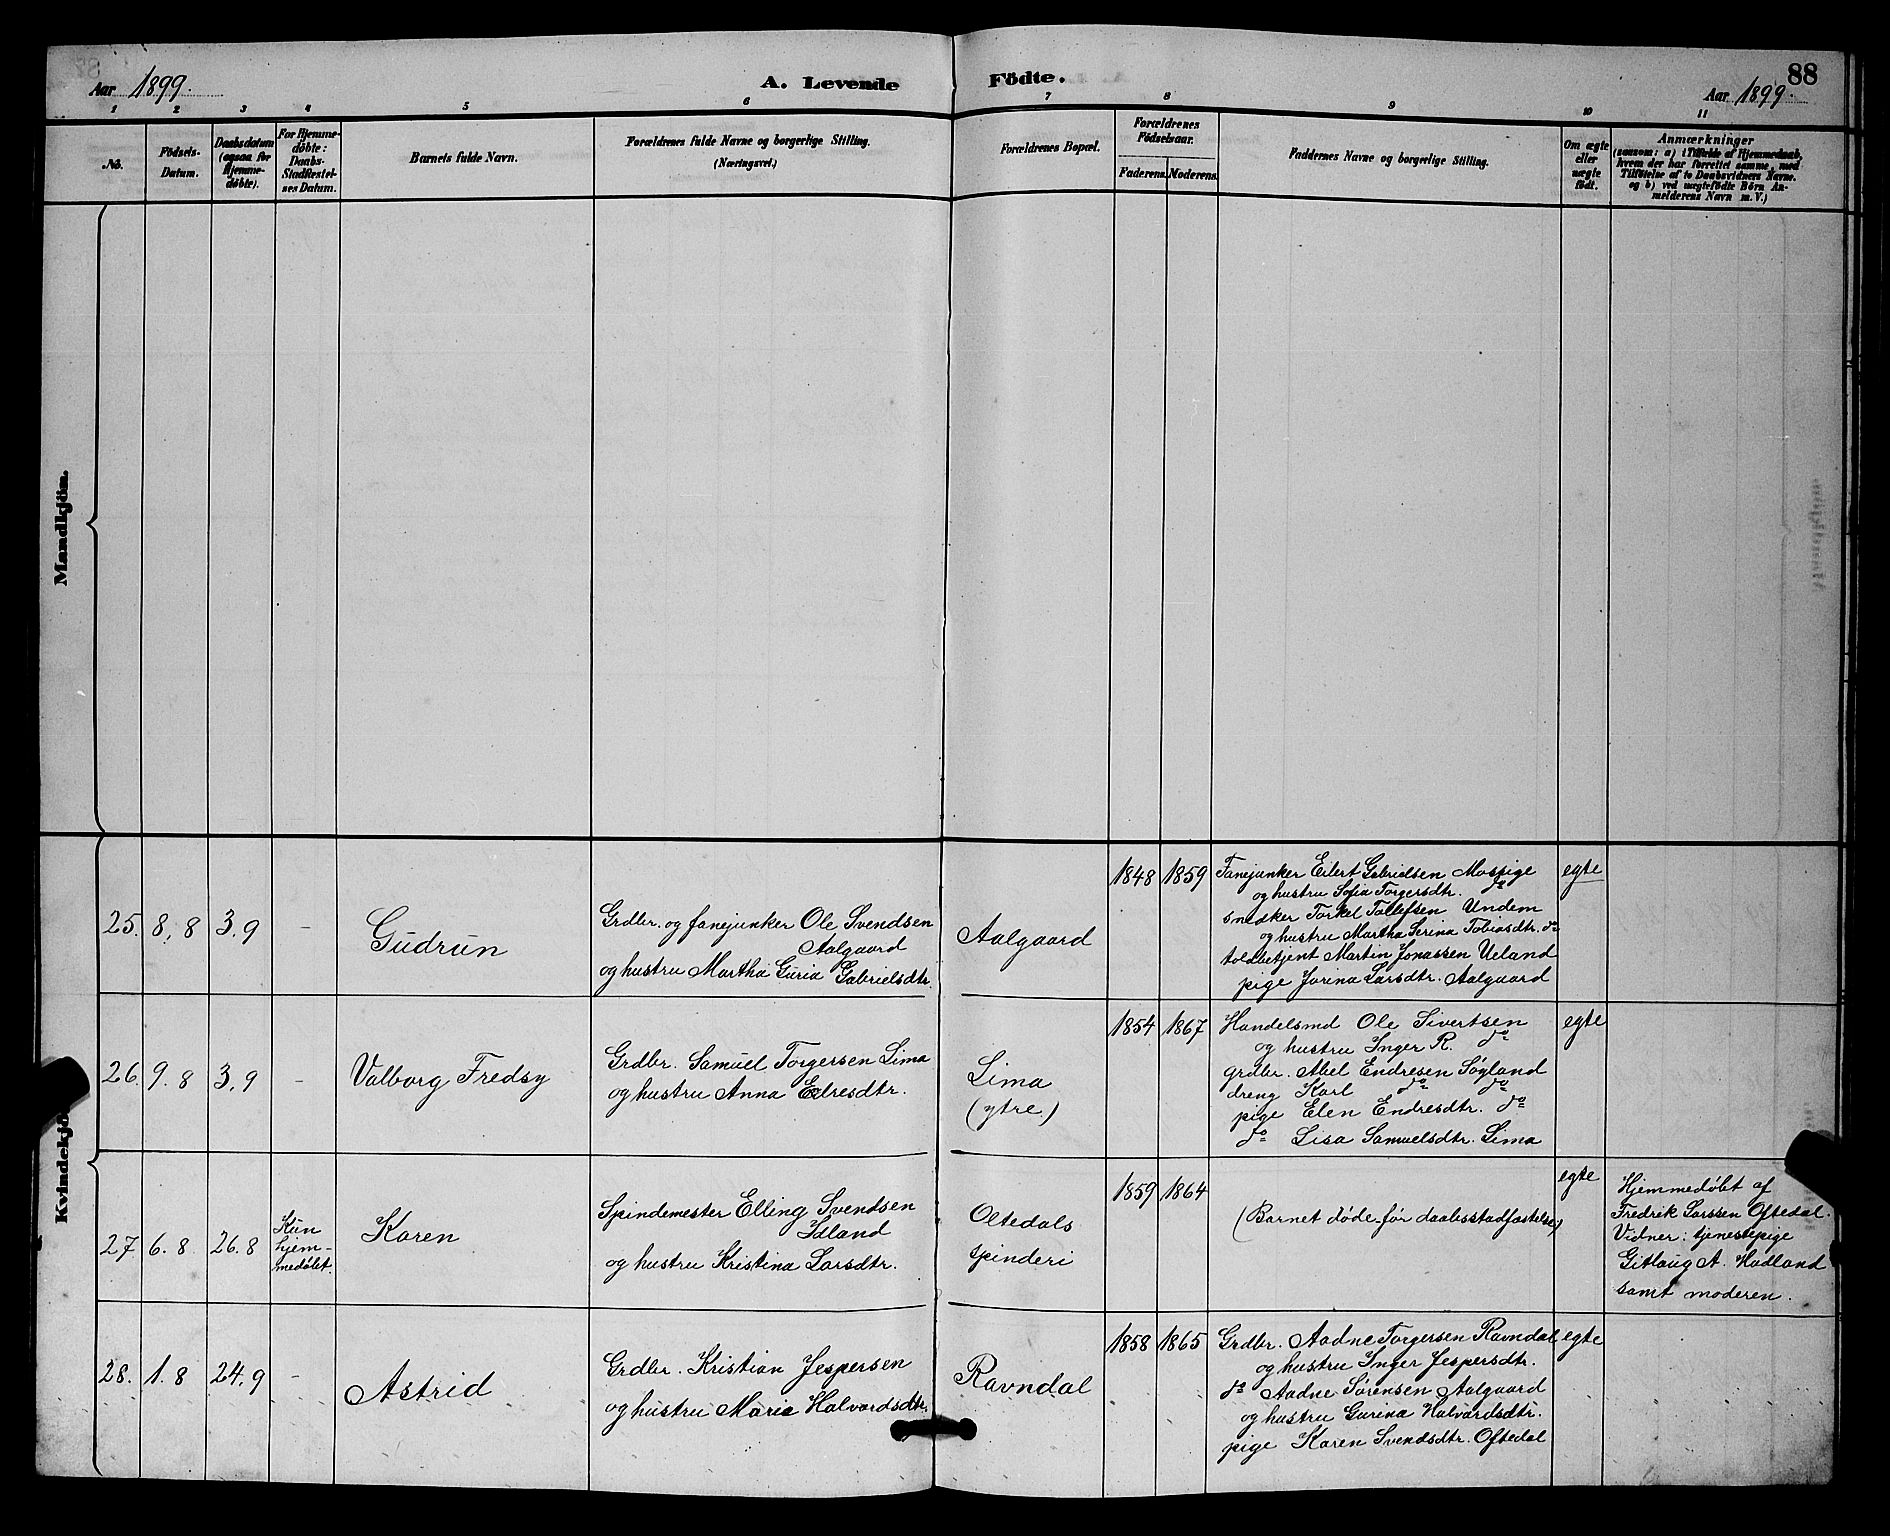 88
Aar 1899.
A. Levende Födte.
Aar 1899.
1 2 3 4 5 6 7 8 9 10 11
No.
Födsels-
Datum.
Daabsdatum
(ogsaa for
Hjemme-
döbte).
For Hjemme-
döbte:
Daabs-
Stadfæstel-
ses Datum.
Barnets fulde Navn.
Forældrenes fulde Navne og borgerlige Stilling.
(Næringsvei.)
Forældrenes Bopæl.
Forældrenes
Födselsaar.
Faderens. Moderens.
Faddernes Navne og borgerlige Stilling.
Om ægte
eller
uægte
födt.
Anmærkninger
(saasom: a) i Tilfælde af Hjemmedaab,
hvem der har forrettet samme, med
Tilföielse af to Daabsvidners Navne,
og b) ved uægtefödte Börn An-
melderens Navn m. V.)
Mandkjön.
Kvindekjö
25. 8.8 3.9 -
Gudrun
Grdbr. og fanejunker Ole Svendsen
Aalgaard
og hustru Martha Guria Gabrielsdtr.
Aalgaard
1848 1859
Fanejunker Eilert Gabrielsen Mossige
og hustru Sofia Torgersdtr. do
snedker Torkel Tollefsen Undem
og hustru Martha Serina Tobiasdtr. do
toldbetjent Martin Jonassen Ueland
pige Jorina Larsdtr. Aalgaard
egte
26. 9.8 3.9 -
Valborg Fredsy
Grdbr. Samuel Torgersen Lima
og hustru Anna Edresdtr.
Lima
(ytre.)
1854 1867
Handelsmd Ole Sivertsen
og hustru Inger R. do
grdbr. Abel Endresen Søyland
dreng Karl do do
pige Elen Endresdtr. do
do Lisa Samuelsdtr. Lima
egte
27 6.8 26.8
Kun
hjem-
medøbt.
Karen
Spindemester Elling Svendsen
Idland
og hustru Kristina Larsdtr.
Oltedals
spinderi
1859 1864
(Barnet døde før daabsstadfæstelse)
egte
Hjemmedøbt af
Fredrik Larssen Oftedal.
Vidner: tjenestepige
Gitlaug A. Hadland
samt moderen.
28. 1.8 24.9 -
Astrid
Grdbr. Kristian Jespersen
og hustru Marie Halvardsdtr.
Ravndal
1858 1865
Grdbr. Aadne Torgersen Ravndal
og hustru Inger Jespersdtr.
do Aadne Sørensen Aalgaard
og hustru Gurina Halvardsdtr.
pige Karen Svendsdtr. Oftedal
egte